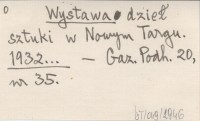 Wystawa dzieł
sztuki w Nowym Targu.
1932... — Gaz. Podh. 20,
nr 35.